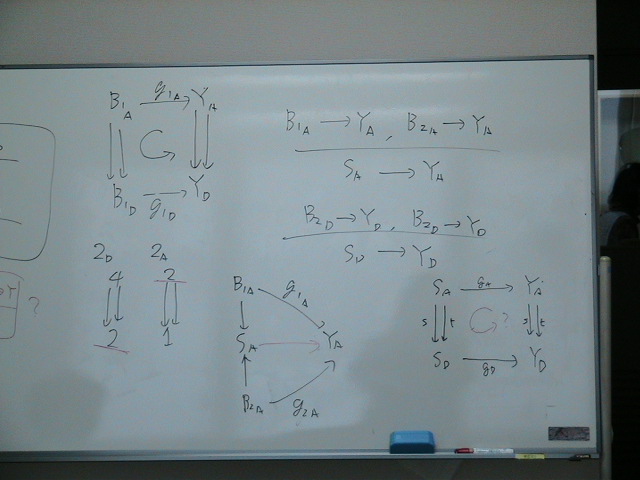 B₁A g₁A Y_A
B₁D g₁D Y_D
B₁A → Y_A, B₂A → Y_A
S_A → Y_A
B₂D → Y_D, B₂D → Y_D
S_D → Y_D
2_D 2_A
4 2
2 1
?
B₁A g₁A
S_A → Y_A
B₂A g₂A
S_A g_A Y_A
s t ? s t
S_D g_D Y_D